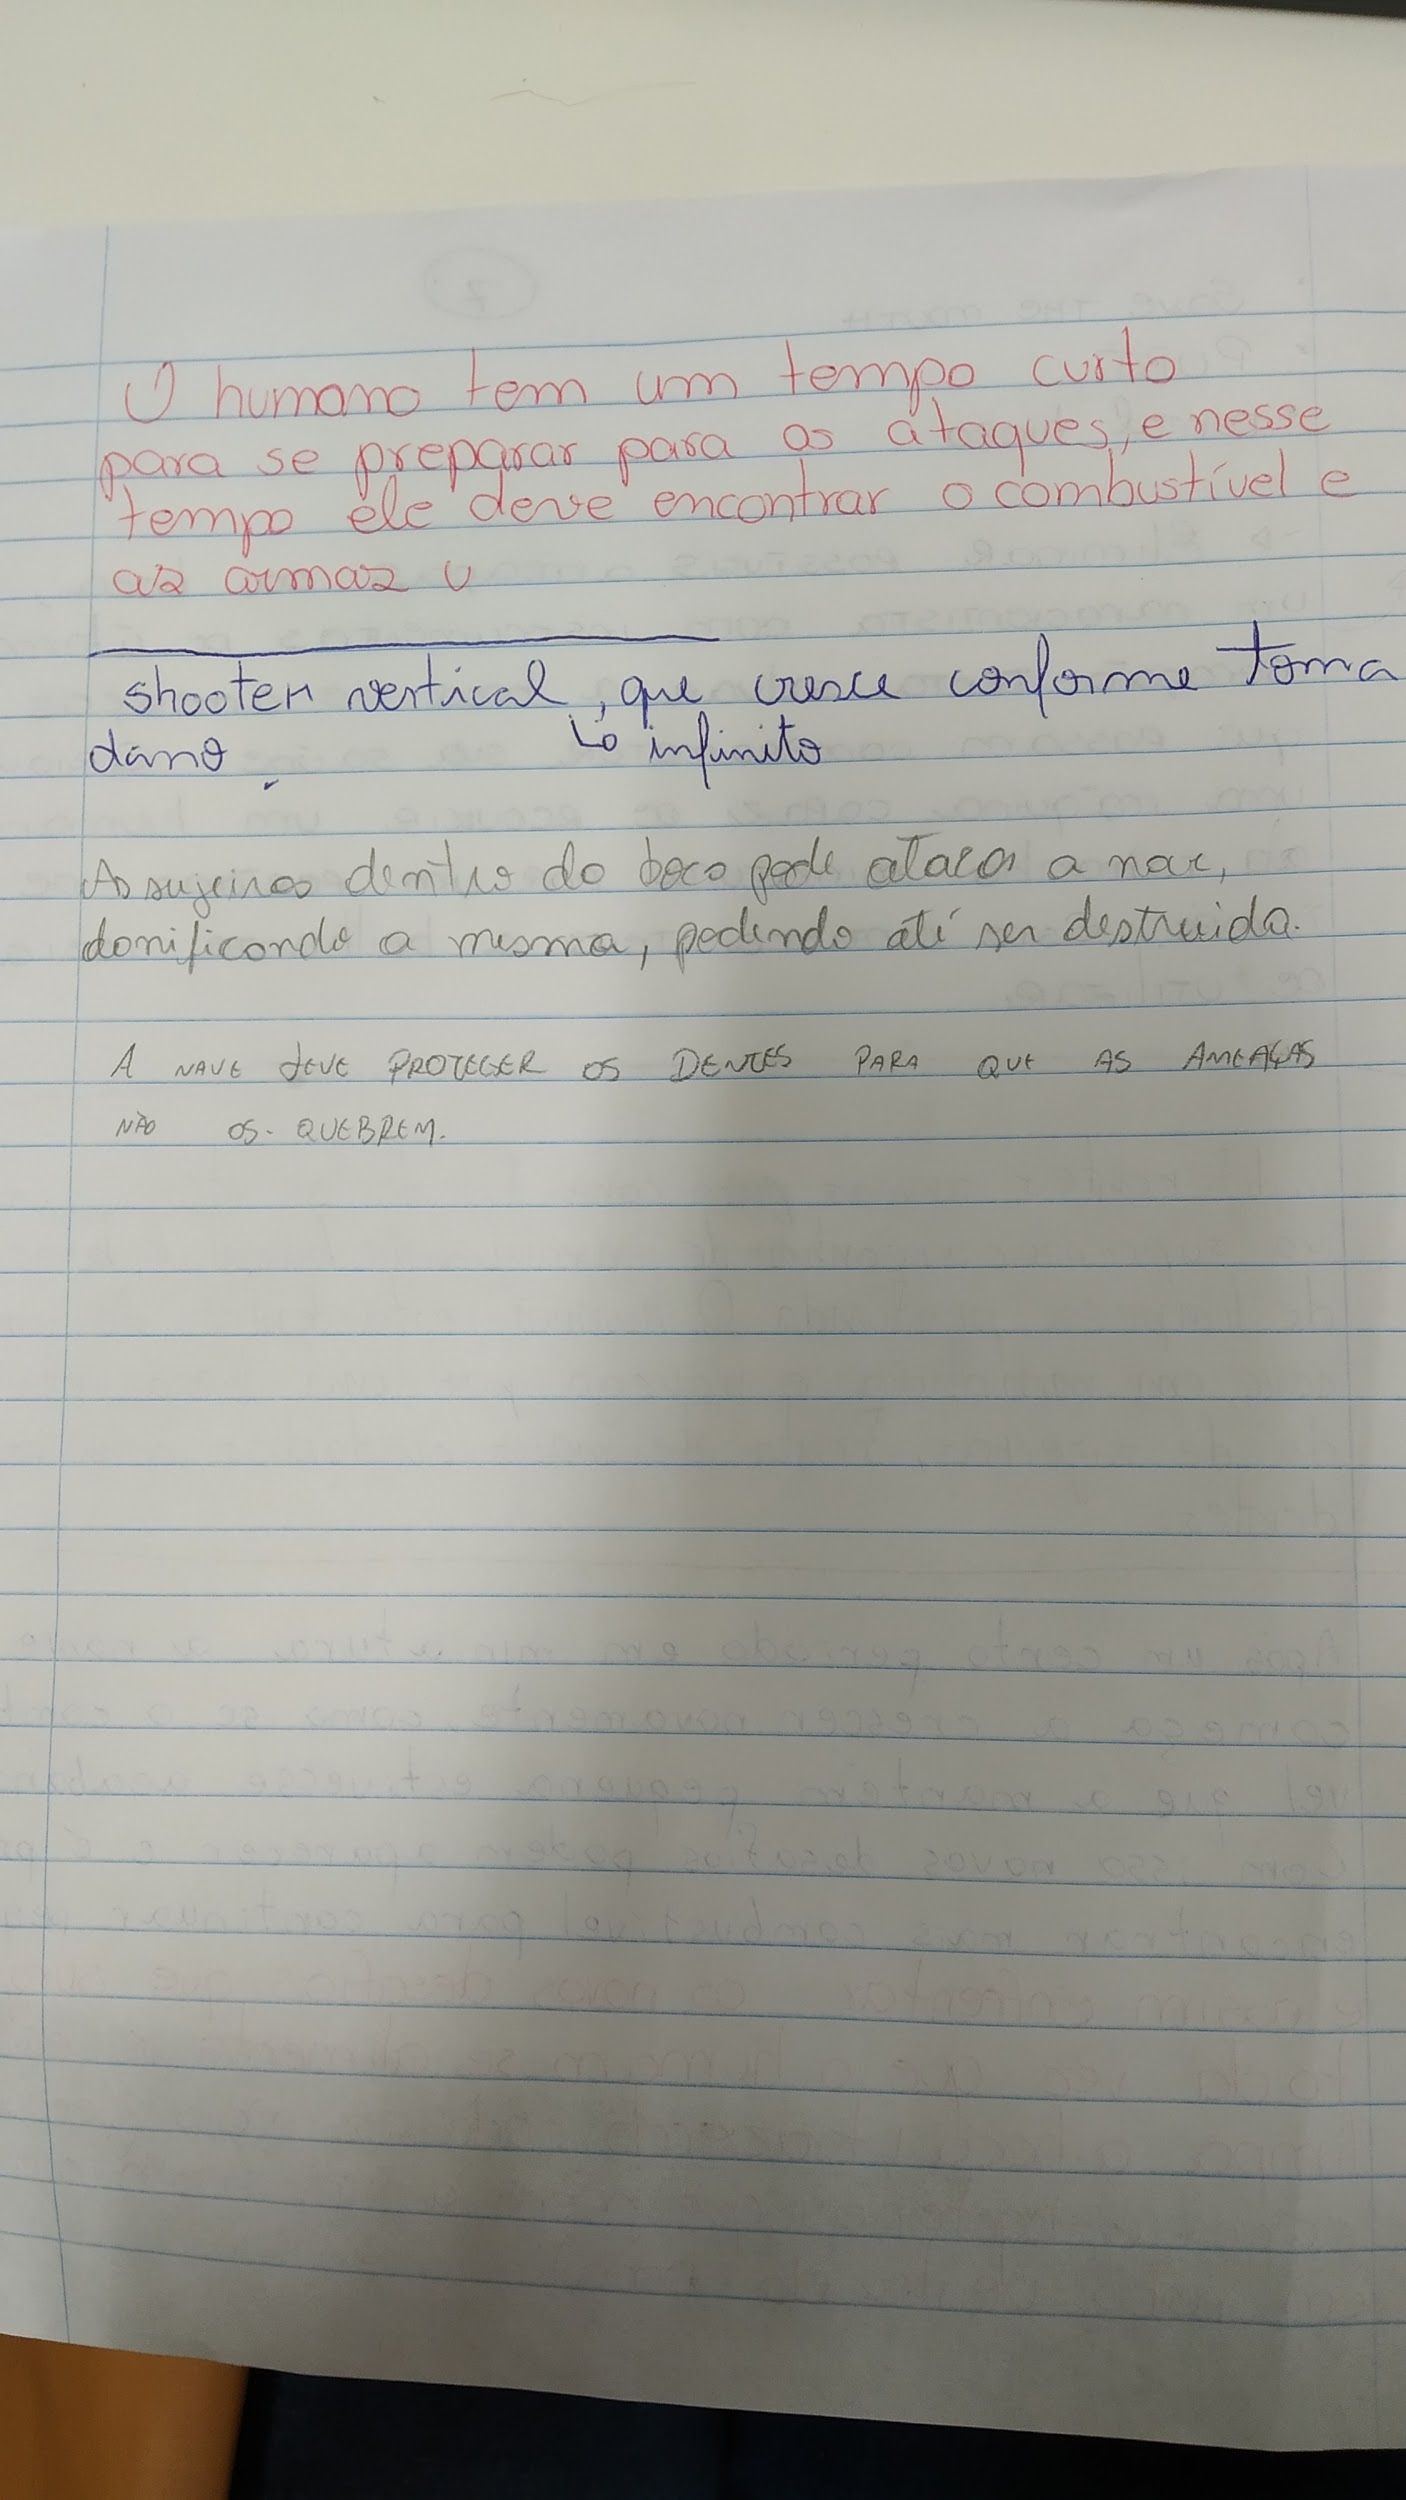 O humano tem um tempo curto
para se preparar para os ataques, e nesse
tempo ele deve encontrar o combustível e
as armas
shooter vertical, que cresce conforme toma
dano. ↳ infinito
As sujeiras dentro da boca pode atacar a nave,
danificando a mesma, podendo até ser destruida.
A NAVE DEVE PROTEGER OS DENTES PARA QUE AS AMEAÇAS
NÃO OS QUEBREM.